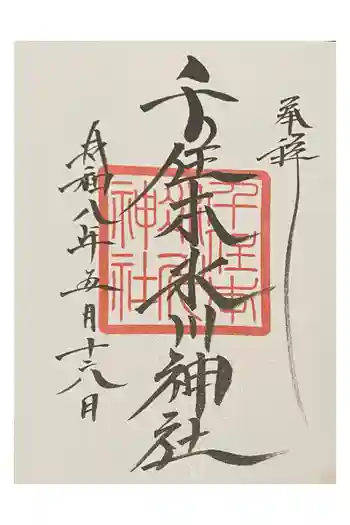 奉拝
千住本氷川神社
千住本氷川神社
令和八年五月十六日